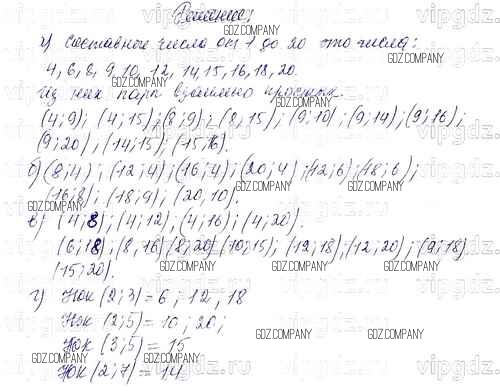 Решение:
а) Составные числа от 1 до 20 это числа:
4, 6, 8, 9, 10, 12, 14, 15, 16, 18, 20.
Из них пары взаимно простых.
(4; 9); (4; 15); (8; 9); (8; 15); (9; 10); (9; 14); (9; 16);
(9; 20); (14; 15); (15; 16).
б) (8; 4); (12; 4); (16; 4); (20; 4); (12; 6); (18; 6);
(16; 8); (18; 9); (20, 10).
в) (4; 8); (4; 12); (4; 16); (4; 20).
(6; 18) (8, 16) (8; 20) (10; 15); (12; 18); (12; 20); (9; 18)
(15; 20).
г) НОК (2; 3) = 6; 12, 18
НОК (2; 5) = 10; 20;
НОК (3; 5) = 15
НОК (2; 7) = 14
GDZ.COMPANY
vipgdz.com